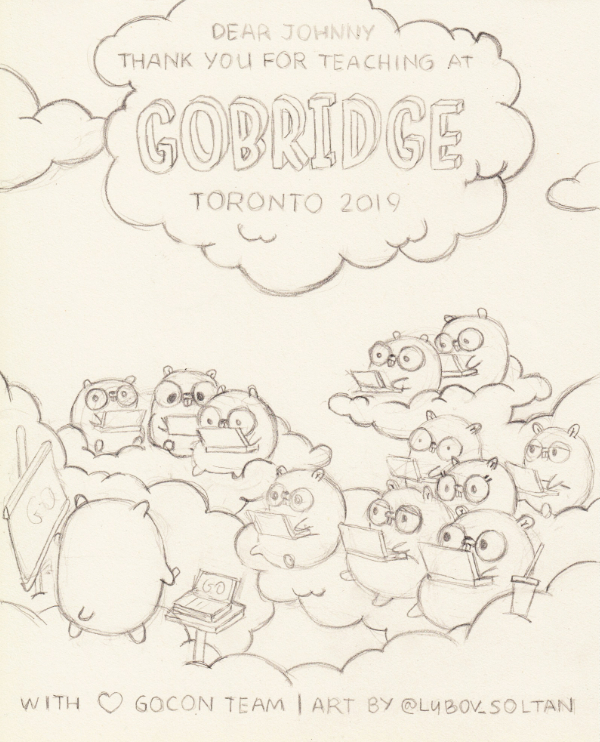 DEAR JOHNNY
THANK YOU FOR TEACHING AT
GOBRIDGE
TORONTO 2019
GO
GO
WITH ♡ GOCON TEAM | ART BY @LYBOV_SOLTAN